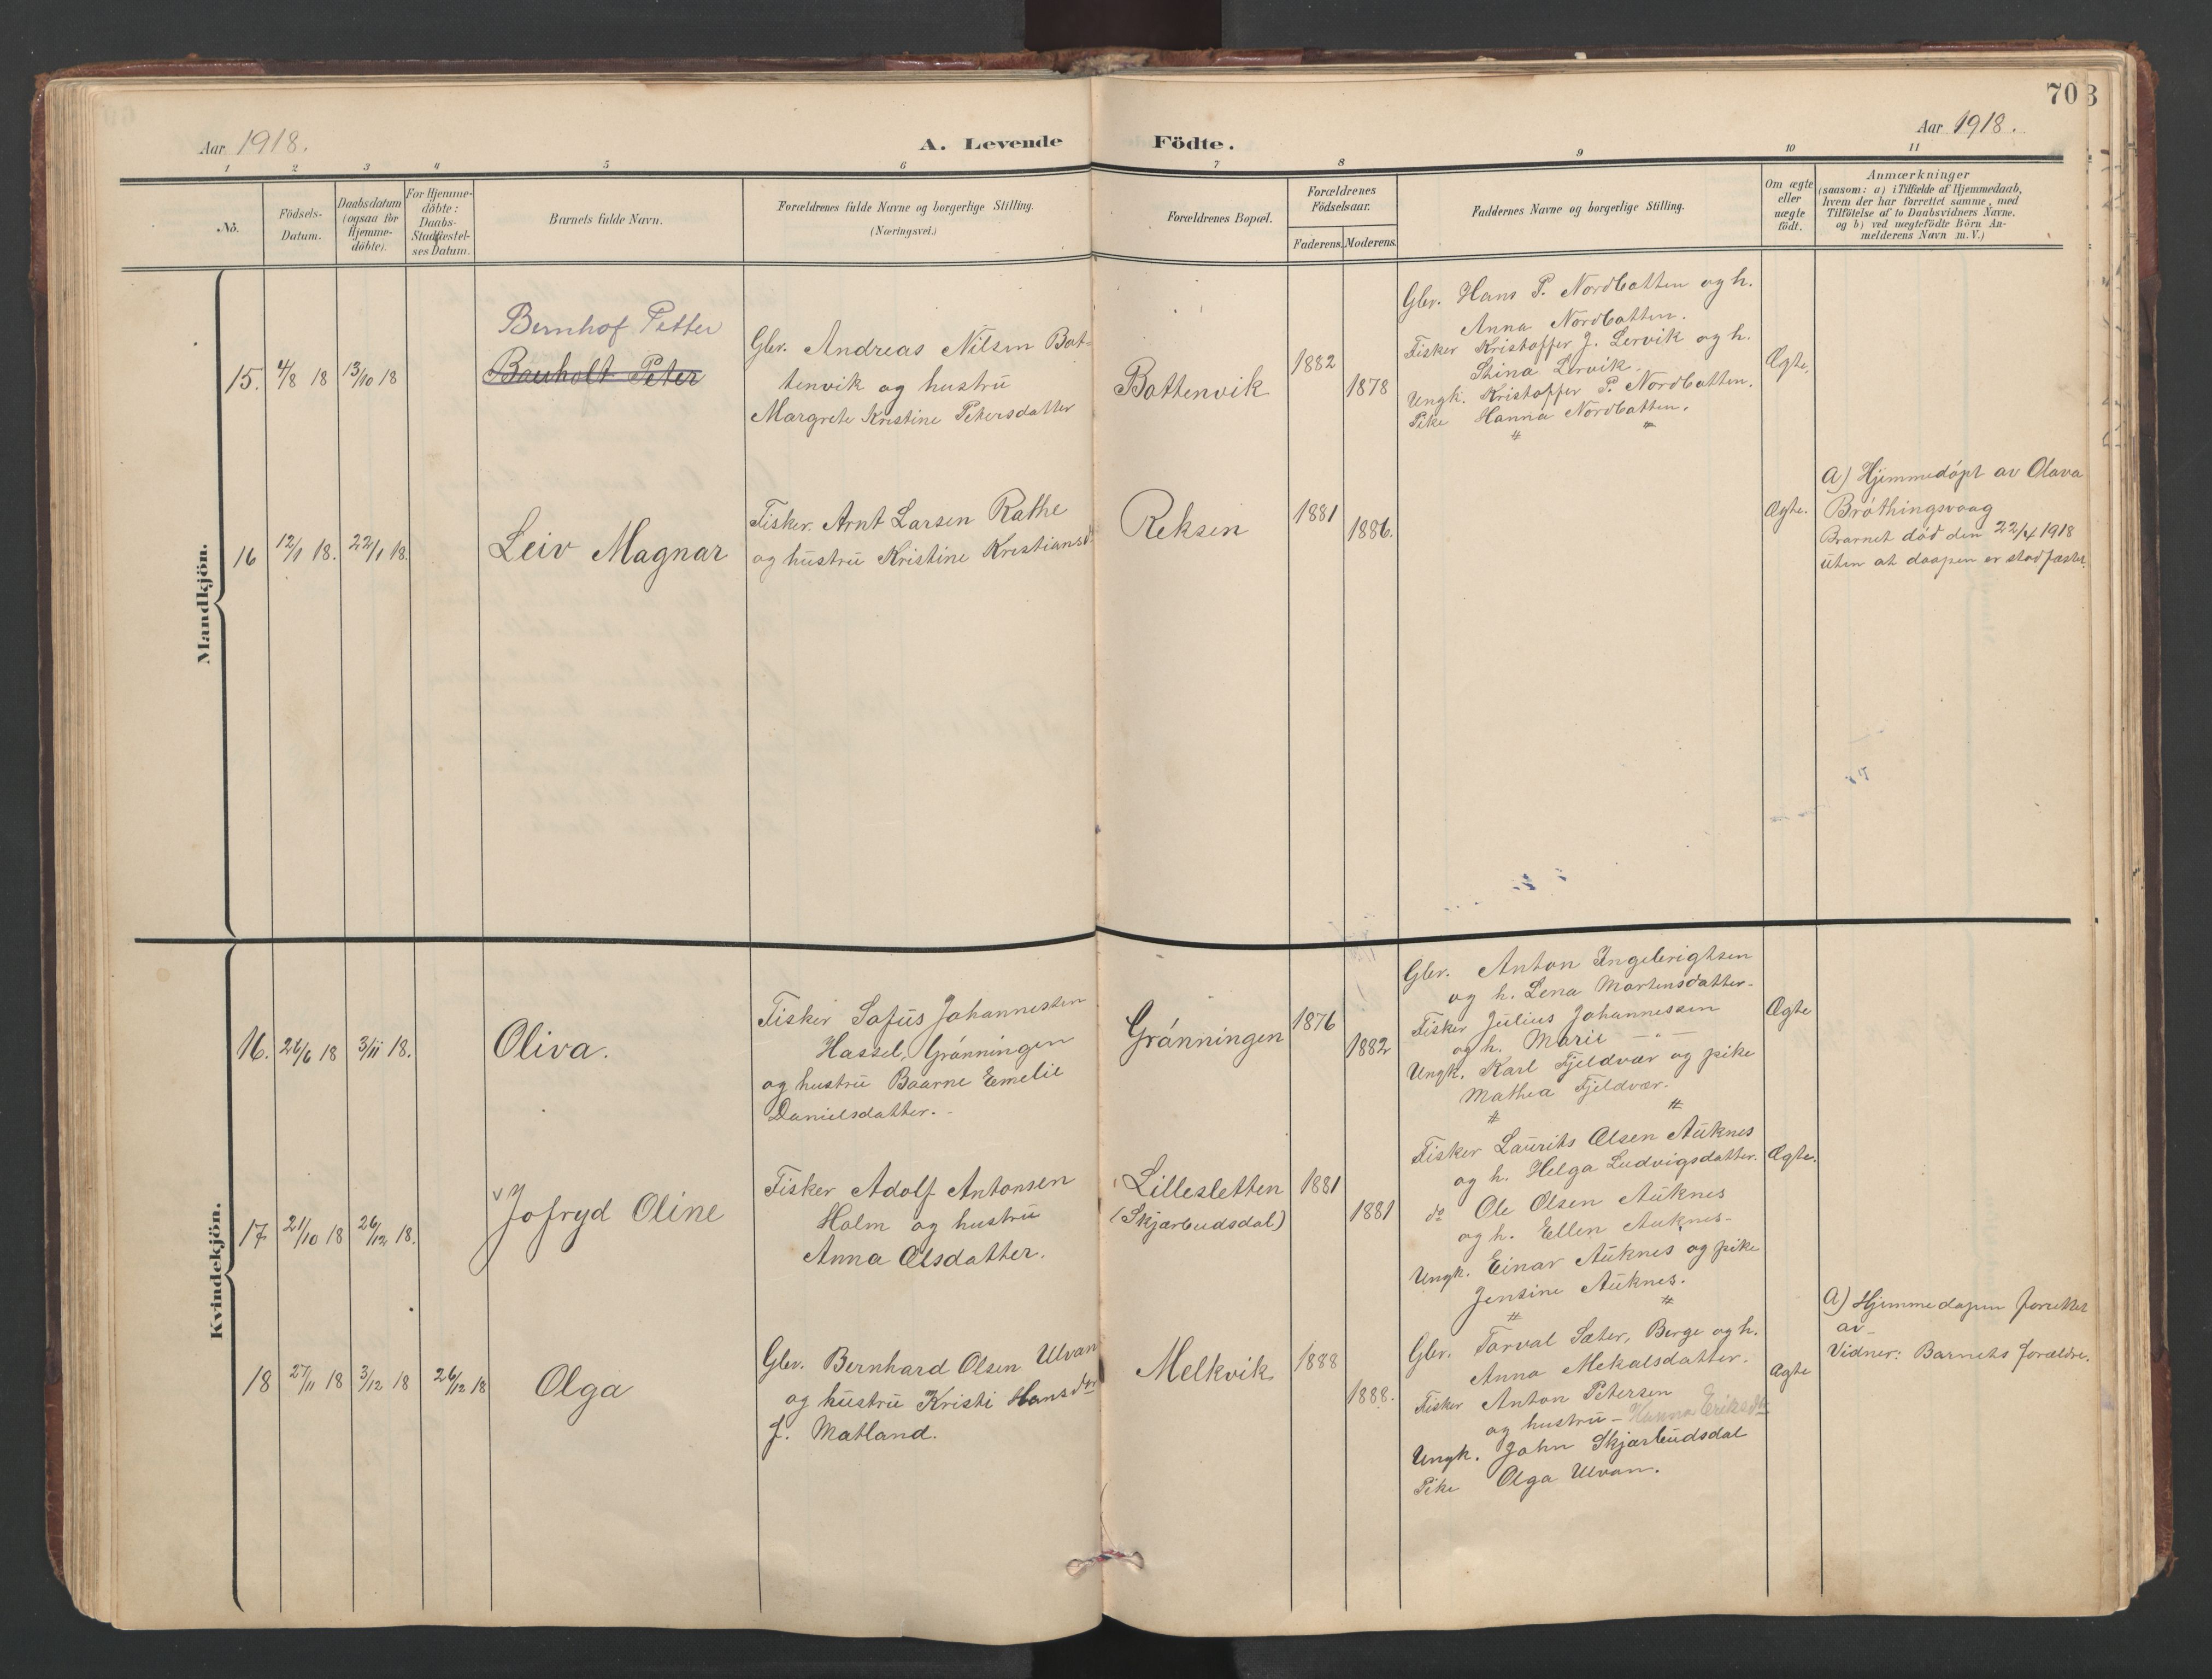 70
Aar 1918.
A. Levende Födte.
Aar 1918.
1 2 3 4 5 6 7 8 9 10 11
No.
Födsels-
Datum.
Daabsdatum
(ogsaa for
Hjemme-
döbte).
For Hjemme-
döbte:
Daabs-
Stadfæstel-
ses Datum.
Barnets fulde Navn.
Forældrenes fulde Navne og borgerlige Stilling.
(Næringsvei.)
Forældrenes Bopæl.
Forældrenes
Födselsaar.
Faderens. Moderens.
Faddernes Navne og borgerlige Stilling.
Om ægte
eller
uægte
födt.
Anmærkninger
(saasom: a) i Tilfælde af Hjemmedaab,
hvem der har forrettet samme, med
Tilföielse af to Daabsvidners Navne,
og b) ved uægtefödte Börn An-
melderens Navn m. V.)
Mandkjön.
15. 4/8 18 13/10 18
Bernhof Petter
Bauholt Peter
Gbr. Andreas Nilsen Bat-
tenvik og hustru
Margrete Kristine Petersdatter
Battenvik
1882
1878
Gbr. Hans P. Nordbatten og h.
Anna Nordbatten.
Fisker Kristoffer J. Lervik og h.
Stina Lervik.
Ungk. Kristoffer P. Nordbatten.
Pike Hanna Nordbatten.
Ægte.
16 12/1 18. 22/1 18.
Leiv Magnar
Fisker. Arnt Larsen Rathe
og hustru Kristine Kristiansd.
Reksen
1881
1886.
Ægte.
A) Hjemmedöpt av Olava
Bröthingsvaag
Brarnet död den 22/4 1918
uten at daapen er stadfæstet.
Kvindekjön.
16. 26/6 18 3/11 18.
Oliva.
Fisker Sofus Johannesen
Hassel, Grönningen
og hustru Baarne Emelie
Danielsdatter.
Grönningen
1876
1882
Gbr. Anton Ingebrigtsen
og h. Lena Martensdatter.
Fisker Julius Johannessen
og h. Marie — " —
Ungk. Karl Fjeldvær og pike
Mathea Fjeldvær.
Ægte
17 21/10 18 26/12 18.
Jofryd Oline
Fisker Adolf Antonsen
Holm og hustru
Anna Olsdatter.
Lillesletten
(Skjærbudsdal)
1881
1881
Fisker Laurits Olsen Auknes
og h. Helga Ludvigsdatter.
do Ole Olsen Auknes
og h. Ellen Auknes.
Ungk. Einar Auknes og pike
Jensine Auknes.
Ægte.
18 27/11 18 3/12 18 26/12 18
Olga
Gbr. Bernhard Olsen Ulvan
og hustru Kristi Hansdtr
f. Matland.
Melkvik
1888
1888.
Gbr. Torval Sæter, Berge og h.
Anna Mekalsdatter.
Fisker Anton Petersen
og hustru — Hanna Eriksdtr
Ungk. John Skjærbudsdal
Pike Olga Ulvan.
Ægte
A) Hjemmedapen forrettet
av
Vidner: Barnets forældre.